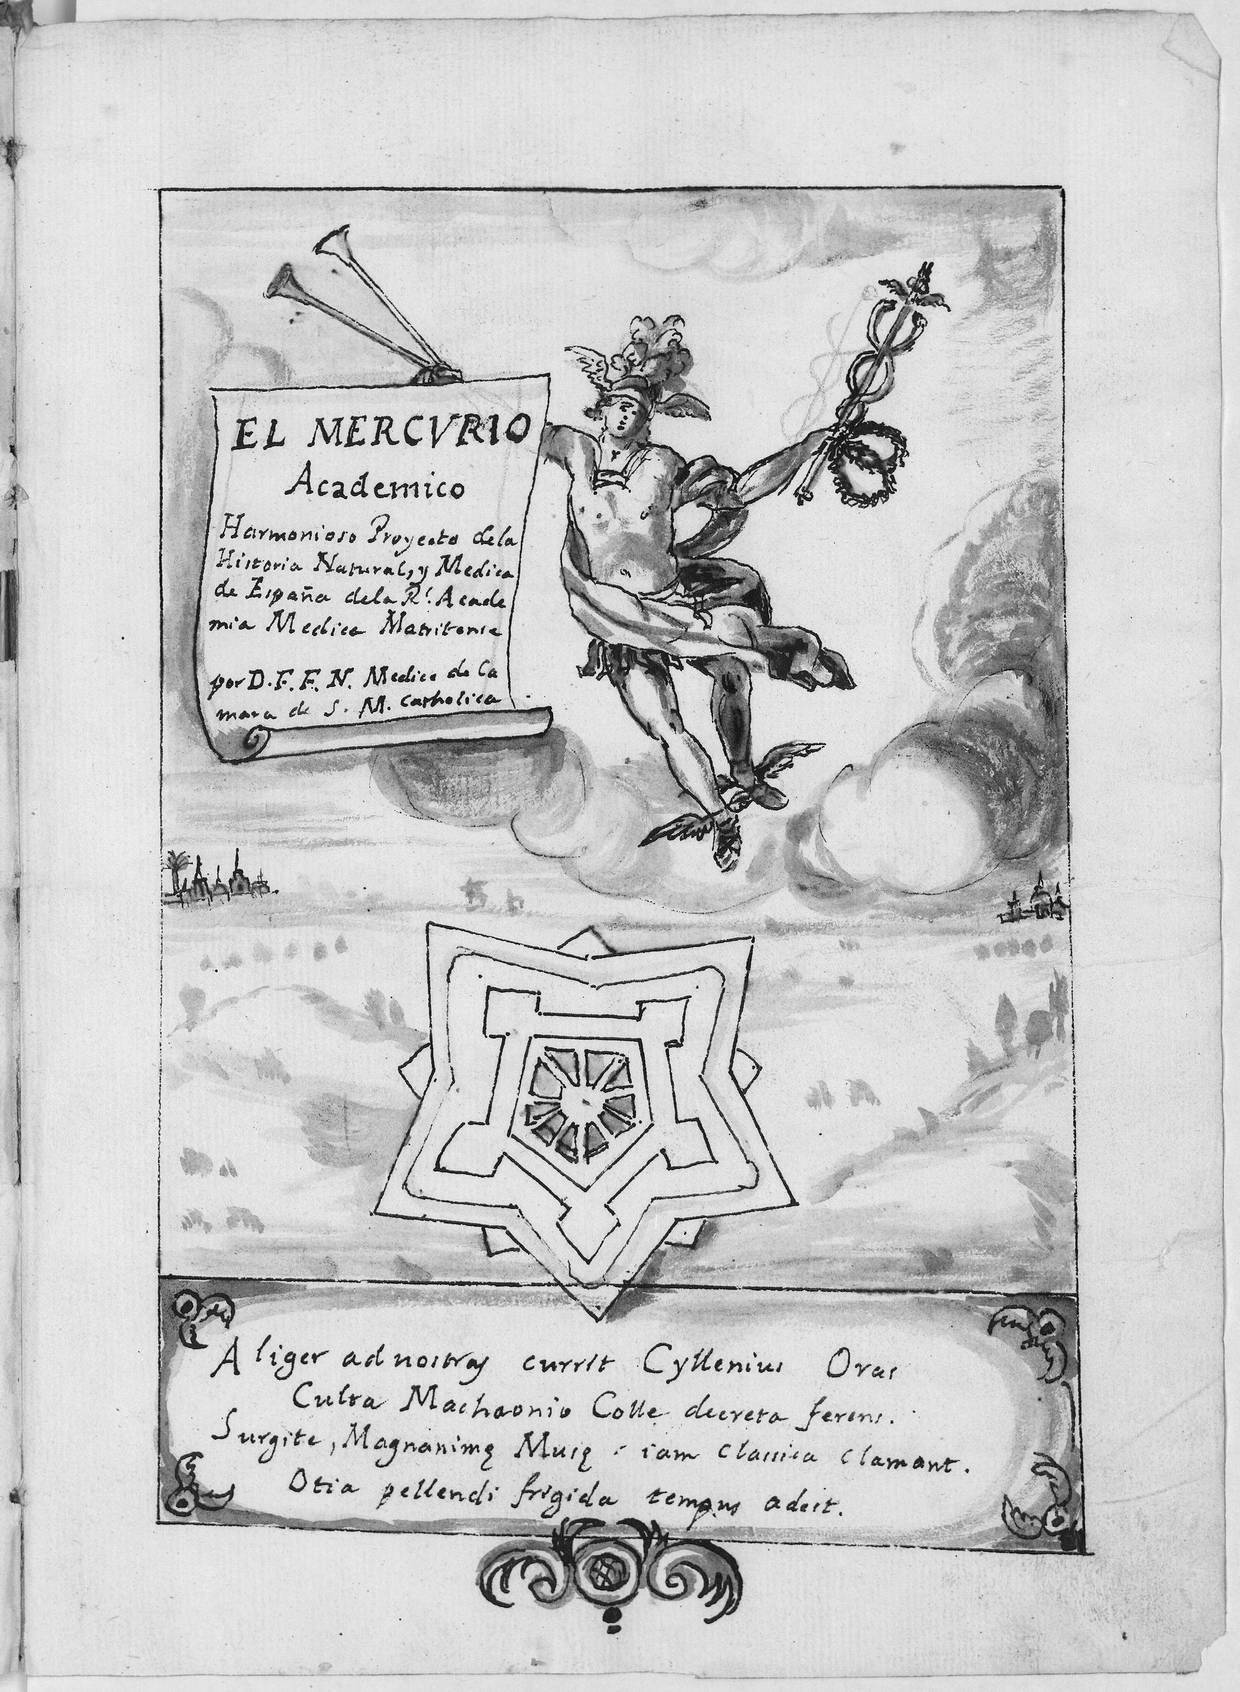 EL MERCVRIO
Academico
Harmonioso Proyecto dela
Historia Natural, y Medica
de España dela Rl. Acade
mia Medica Matritense
por D. F. F. N. Medico de Ca
mara de S. M. Catholica
Aliger ad nostras currit Cyllenius Oras
Culta Machaonio Colle decreta ferens.
Surgite, Magnanimę Musę : iam Classica Clamant.
Otia pellendi frigida tempus adest.